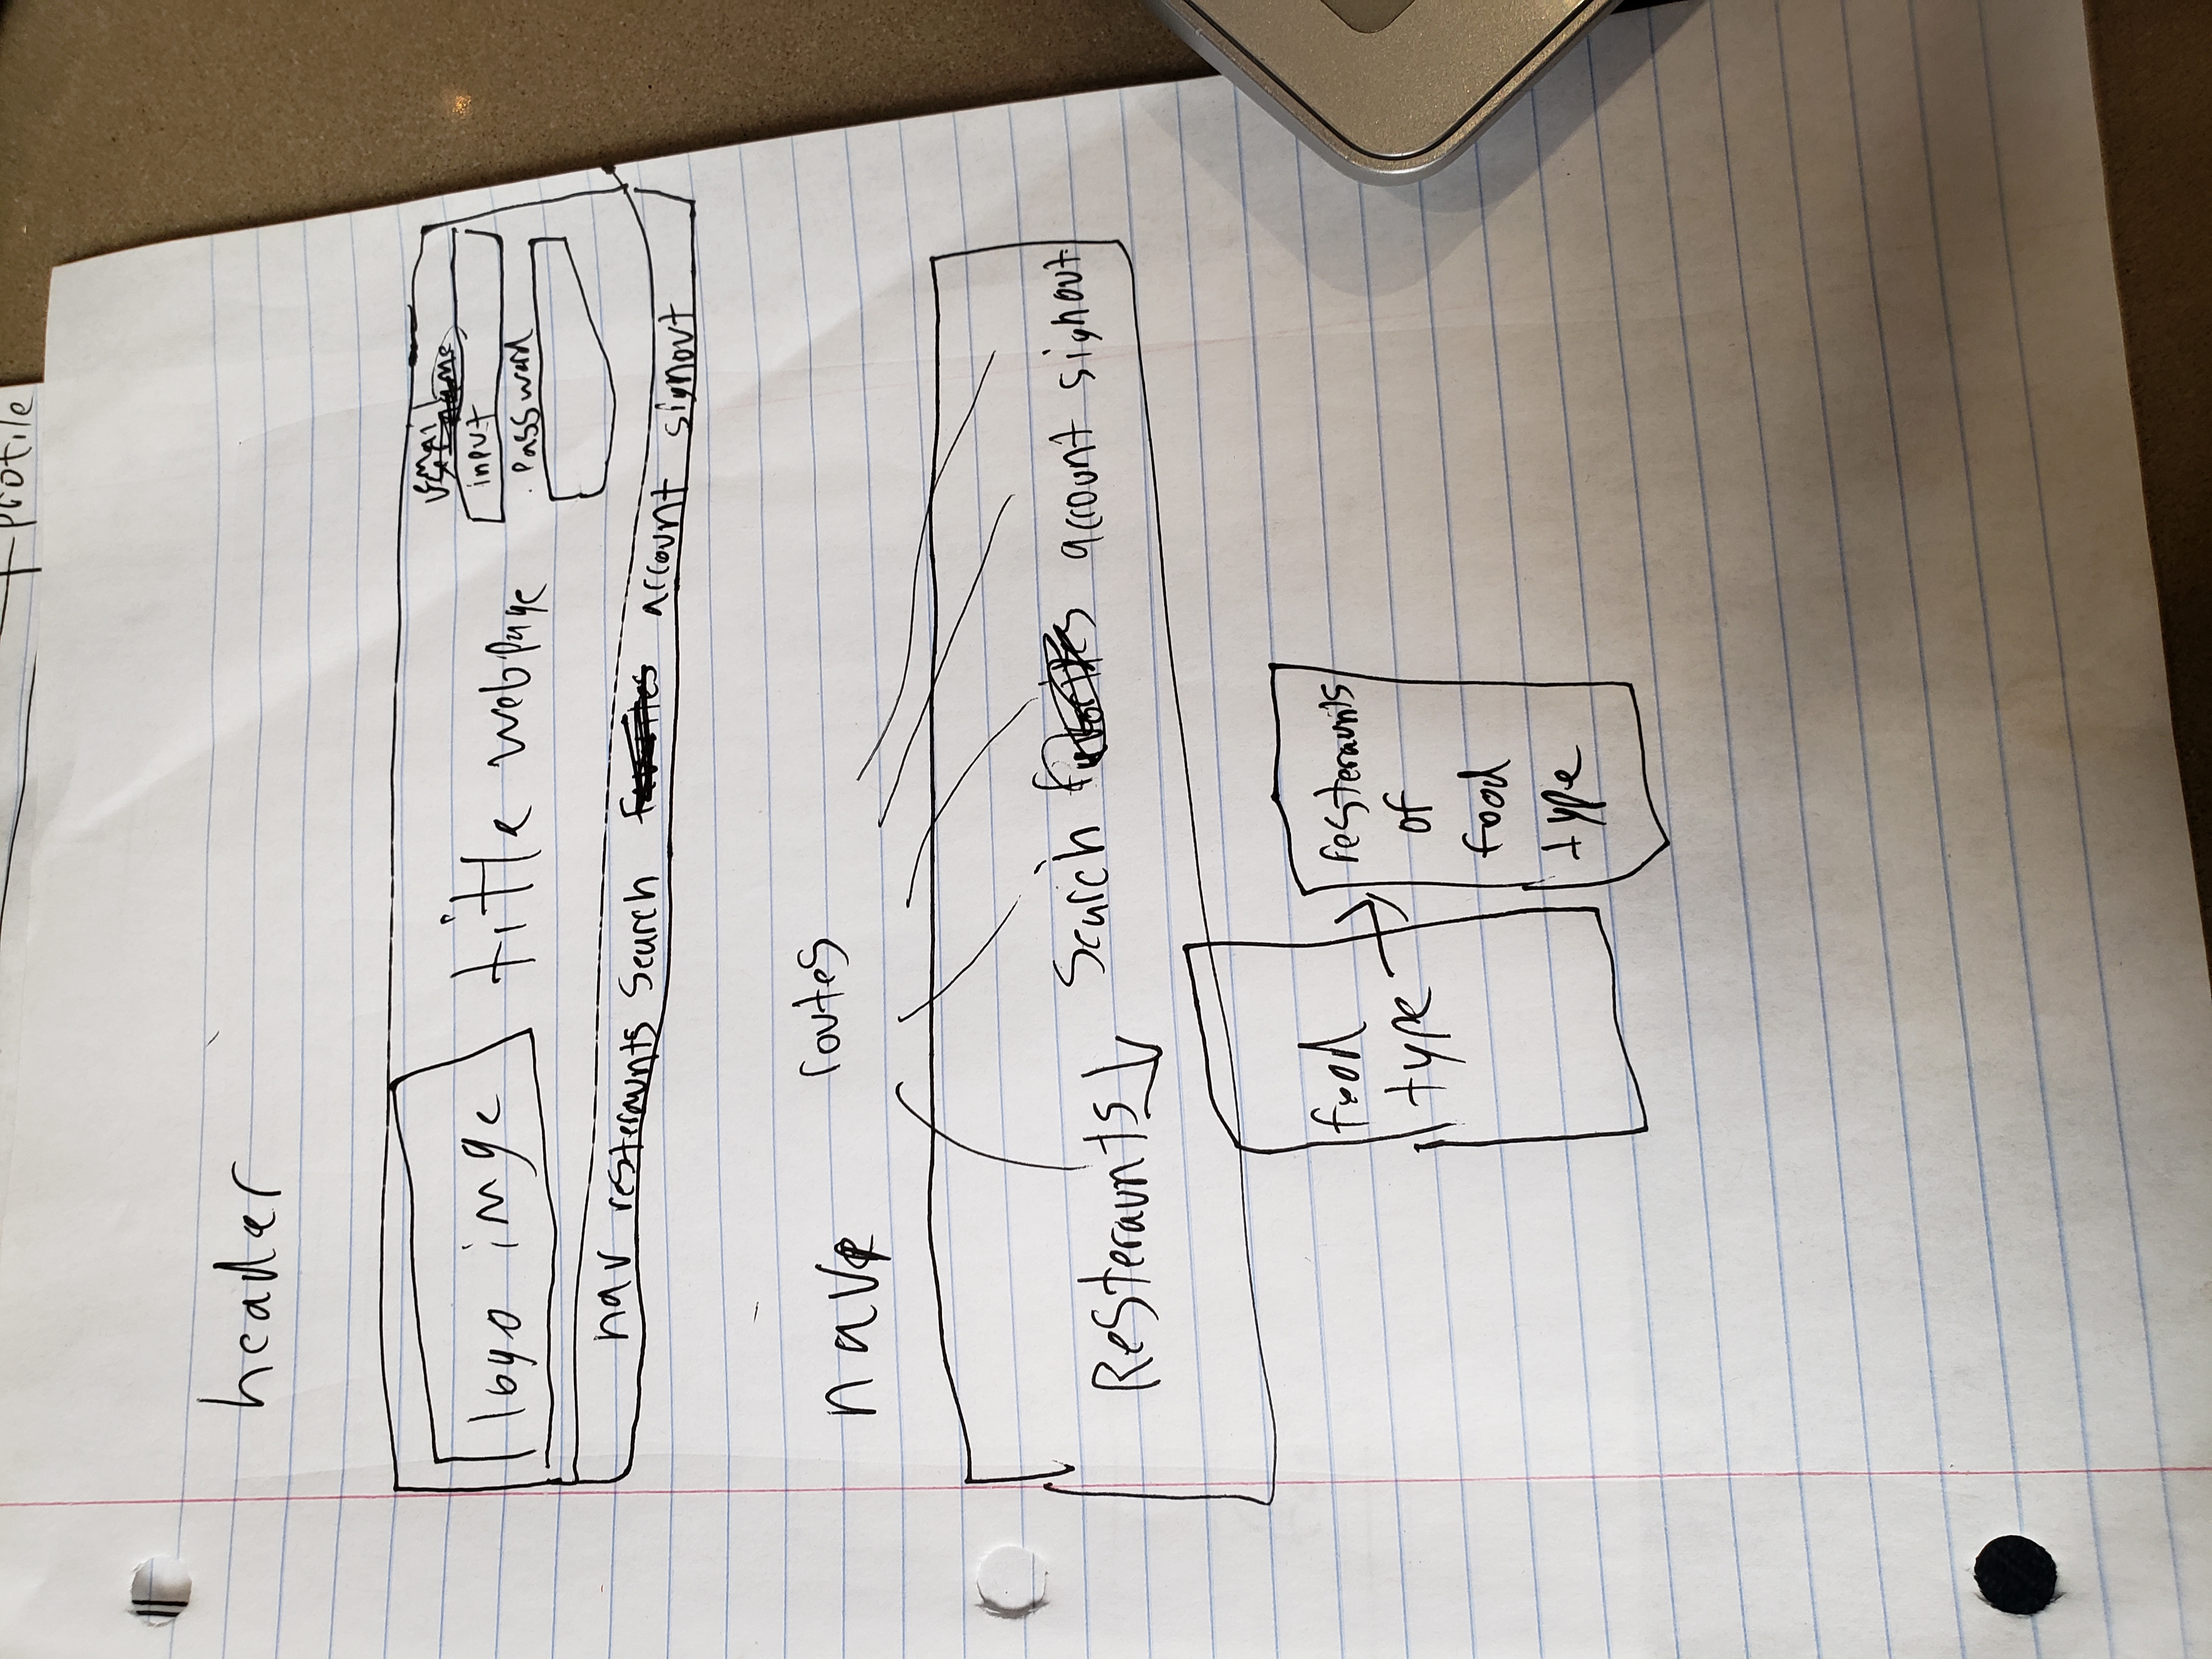 profile
header
email
username
logo imge title webpage
input
password
nav resteraunts Search favorites account signout
nav
routes
Resteraunts Search favorites account signout
food
type
resteraunts
of
food
type